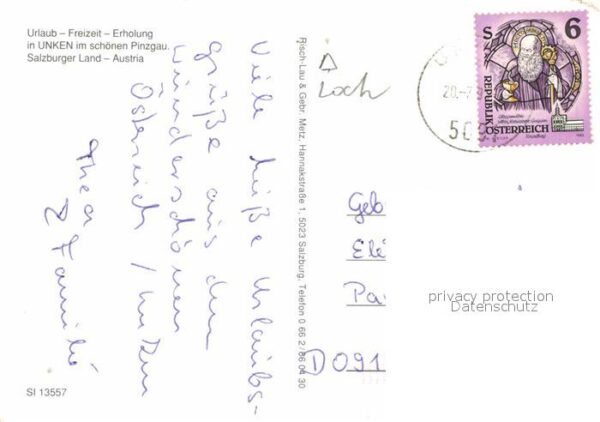 Urlaub – Freizeit – Erholung
in UNKEN im schönen Pinzgau.
Salzburger Land – Austria
Viele liebe Urlaubs-
grüße aus dem
wunderschönen
Österreich /
Thea
& Familie
SI 13557
Risch-Lau & Gebr. Metz, Hannakstraße 1, 5023 Salzburg, Telefon 0 66 2/86 04 30
Loch
20.-7
50
S 6
REPUBLIK
ÖSTERREICH
Geb
Eli
Pa
privacy protection
Datenschutz
D 091